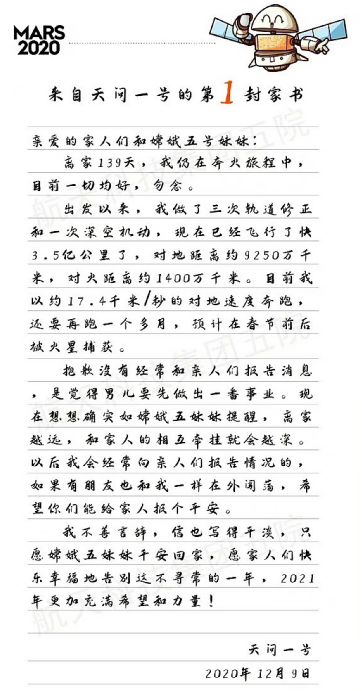 MARS
2020
来自天问一号的第1封家书
亲爱的家人们和嫦娥五号妹妹：
离家139天，我仍在奔火旅程中，
目前一切均好，勿念。
出发以来，我做了三次轨道修正
和一次深空机动，现在已经飞行了快
3.5亿公里了，对地距离约9250万千
米，对火距离约1400万千米。目前我
以约17.4千米/秒的对地速度奔跑，
还要再跑一个多月，预计在春节前后
被火星捕获。
抱歉没有经常和亲人们报告消息
，是觉得男儿要先做出一番事业。现
在想想确实如嫦娥五妹妹提醒，离家
越远，和家人的相互牵挂就会越深。
以后我会经常向亲人们报告情况的，
如果有朋友也和我一样在外闯荡，希
望你们能给家人报个平安。
我不善言辞，信也写得平淡，只
愿嫦娥五妹妹平安回家，愿家人们快
乐幸福地告别这不寻常的一年，2021
年更加充满希望和力量！
天问一号
2020年12月9日